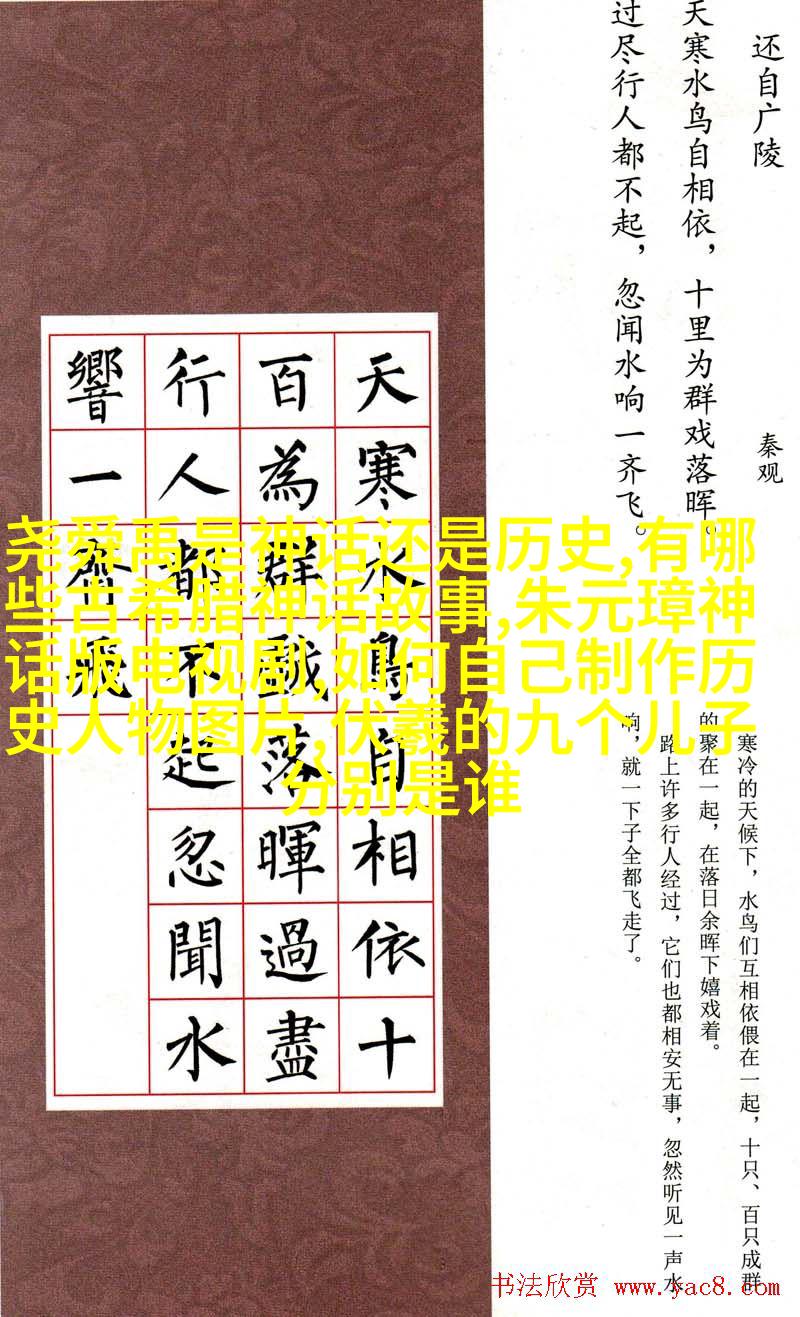 还自广陵
秦观
天寒水鸟自相依，十里为群戏落晖。
过尽行人都不起，忽闻水响一齐飞。
天寒水鳥自相依十
百為群戲落暉過盡
行人都不起忽聞水
響一齊飛
尧舜禹是神话还是历史,有哪
些古希腊神话故事,朱元璋神
话版电视剧,如何自己制作历
史人物图片,伏羲的九个儿子
分别是谁
寒冷的天候下，水鸟们互相依偎在一起，十只、百只成群
的聚在一起，在落日余晖下嬉戏着。
路上许多行人经过，它们也都相安无事，忽然听见一声水
响，就一下子全都飞走了。
书法欣赏 www.yac8.com